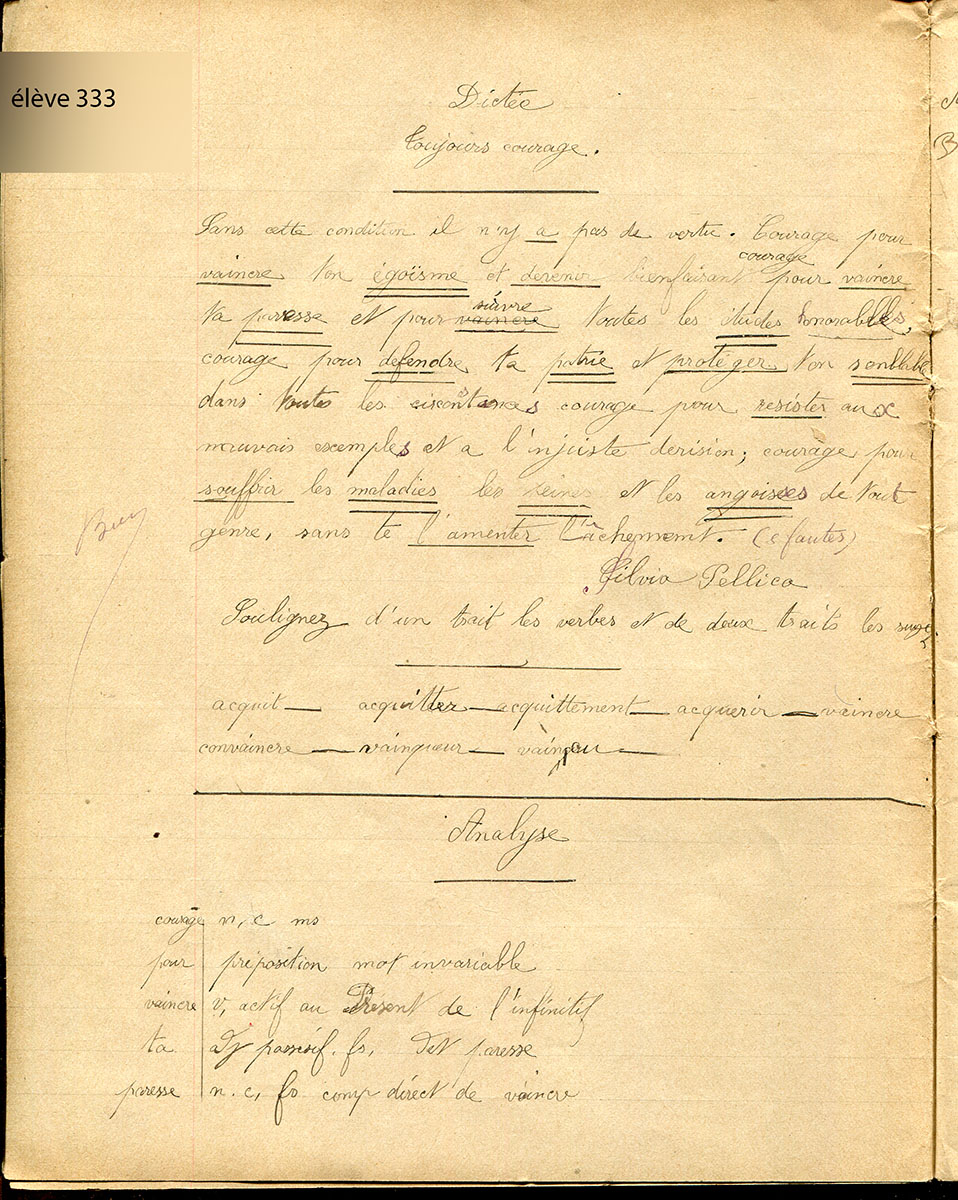 élève 333
Dictée
Toujours courage.
Sans cette condition il n'y a pas de vertu. Courage pour
vaincre ton égoïsme et devenir bienfaisant courage pour vaincre
ta paresse et pour vaincre suivre toutes les études honorables,
courage pour défendre ta patrie et protéger ton
dans toutes les courage pour resister aux
mauvais exemples et a l'injuste derision; courage pour
souffrir les maladies les peines et les angoisses de tout
genre, sans te l'amenter lâchement. (fautes)
Silvio Pellico
Soulignez d'un trait les verbes et de deux traits les
acquit — acquitter — acquittement — acquerir — vaincre
convaincre — vainqueur — vaincu —
Bien
Analyse
courage n, c ms
pour préposition mot invariable
vaincre v, actif au Présent de l'infinitif
ta fs, Det paresse
paresse n. c, fs comp direct de vaincre